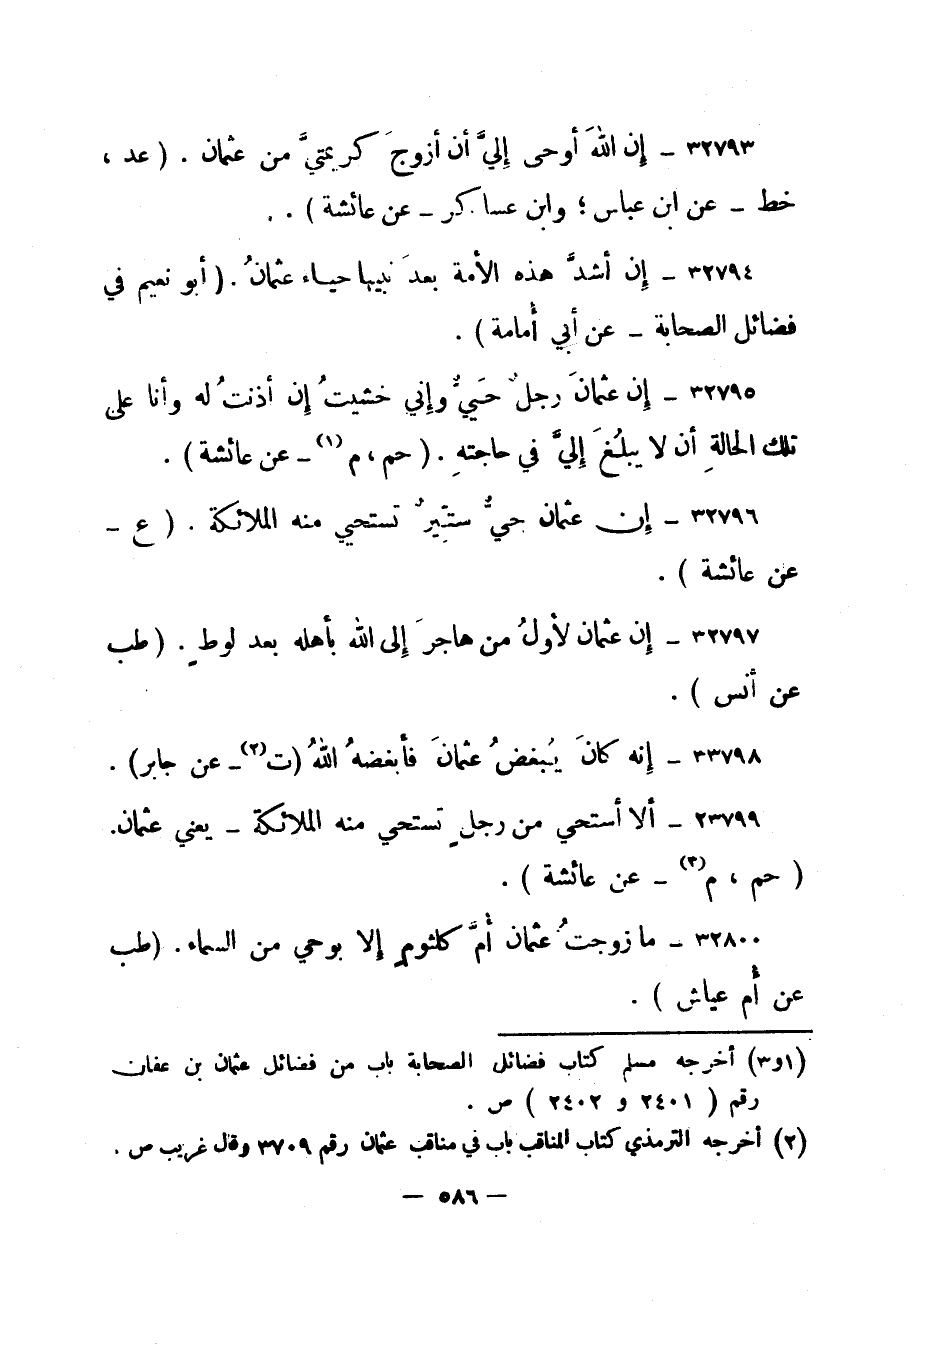 ٣٢٧٩٣ ـ إن اللهَ أوحى إليَّ أن أزوجَ كريمتيَّ من عثمان . ( عد ،
خط ـ عن ابن عباس ؛ وابن عساكر ـ عن عائشة ) . .
٣٢٧٩٤ ـ إن أشدَّ هذه الأمة بعدَ نبيها حياء عثمانُ . ( أبو نعيم في
فضائل الصحابة ـ عن أبي أمامة ) .
٣٢٧٩٥ ـ إن عثمانَ رجلٌ حَييٌّ وإني خشيتُ إن أذنتُ له وأنا على
تلك الحالةِ أن لا يبلُغَ إليَّ في حاجتهِ . ( حم ، م (١) ـ عن عائشة ) .
٣٢٧٩٦ ـ إن عثمان حييٌّ ستيرٌ تستحيي منه الملائكة . ( ع ـ
عن عائشة ) .
٣٢٧٩٧ ـ إن عثمان لأولُ من هاجرَ إلى الله بأهله بعد لوطٍ . ( طب
عن أنس ) .
٣٣٧٩٨ ـ إنه كانَ يُبغضُ عثمانَ فأبغضهُ اللهُ (ت (٢) ـ عن جابر) .
٢٣٧٩٩ ـ ألا أستحي من رجلٍ تستحي منه الملائكة ـ يعني عثمان.
( حم ، م (٣) ـ عن عائشة ) .
٣٢٨٠٠ ـ ما زوجتُ عثمان أمَّ كلثومٍ إلا بوحي من السماء . (طب
عن أم عياش ) .
(١و٣) أخرجه مسلم كتاب فضائل الصحابة باب من فضائل عثمان بن عفان
رقم ( ٢٤٠١ و ٢٤٠٢ ) ص .
(٢) أخرجه الترمذي كتاب المناقب باب في مناقب عثمان رقم ٣٧٠٩ وقال غريب ص .
— ٥٨٦ —